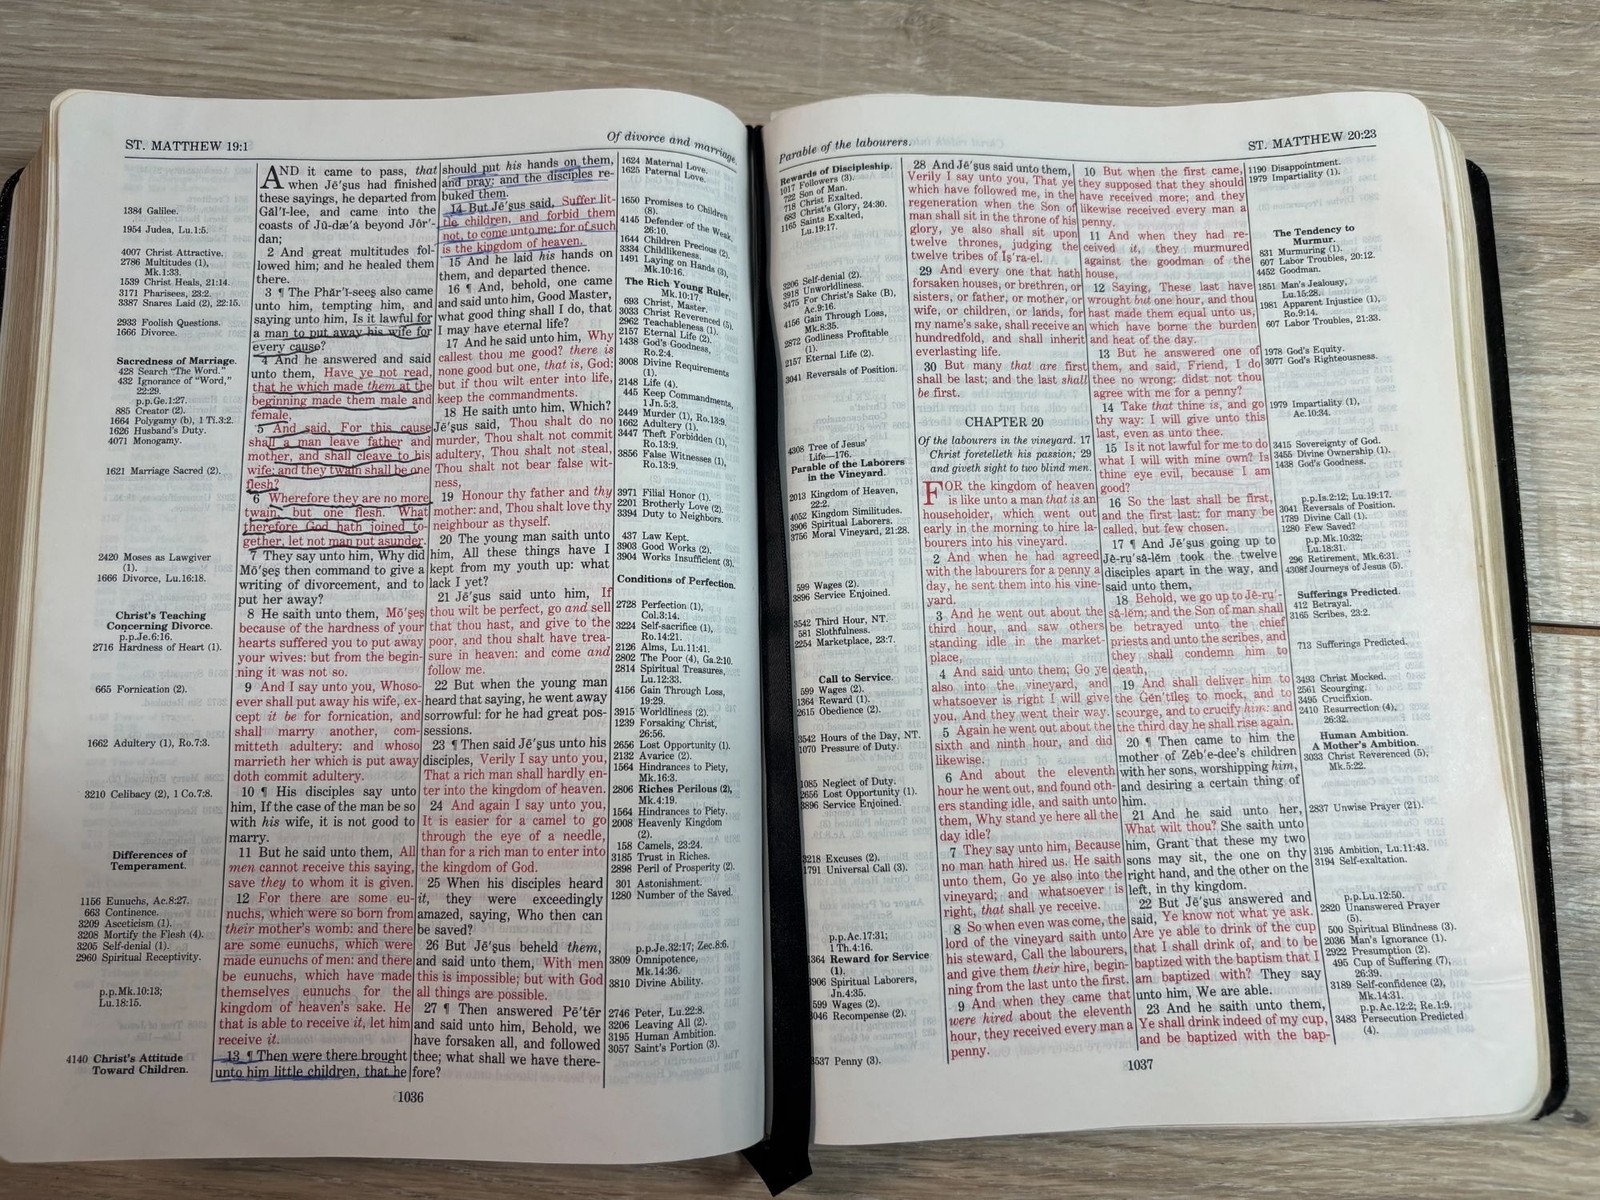 ST. MATTHEW 19:1
Of divorce and marriage.
1384 Galilee.
1954 Judea, Lu.1:5.
4007 Christ Attractive.
2786 Multitudes (1),
Mk.1:33.
1539 Christ Heals, 21:14.
3171 Pharisees, 23:2.
3387 Snares Laid (2), 22:15.
2933 Foolish Questions.
1666 Divorce.
Sacredness of Marriage.
428 Search "The Word."
432 Ignorance of "Word,"
22:29.
p.p.Ge.1:27.
885 Creator (2).
1664 Polygamy (b), 1 Ti.3:2.
1626 Husband's Duty.
4071 Monogamy.
1621 Marriage Sacred (2).
2420 Moses as Lawgiver
(1).
1666 Divorce, Lu.16:18.
Christ's Teaching
Concerning Divorce.
p.p.Je.6:16.
2716 Hardness of Heart (1).
665 Fornication (2).
1662 Adultery (1), Ro.7:3.
3210 Celibacy (2), 1 Co.7:8.
Differences of
Temperament.
1156 Eunuchs, Ac.8:27.
663 Continence.
3209 Asceticism (1).
3208 Mortify the Flesh (4).
3205 Self-denial (1).
2960 Spiritual Receptivity.
p.p.Mk.10:13;
Lu.18:15.
4140 Christ's Attitude
Toward Children.
AND it came to pass, that
when Jē'ṣus had finished
these sayings, he departed from
Găl'ĭ-lee, and came into the
coasts of Jū-dæ'a beyond Jôr'-
dan;
2 And great multitudes fol-
lowed him; and he healed them
there.
3 ¶ The Phăr'ĭ-seeṣ also came
unto him, tempting him, and
saying unto him, Is it lawful for
a man to put away his wife for
every cause?
4 And he answered and said
unto them, Have ye not read,
that he which made them at the
beginning made them male and
female,
5 And said, For this cause
shall a man leave father and
mother, and shall cleave to his
wife: and they twain shall be one
flesh?
6 Wherefore they are no more
twain, but one flesh. What
therefore God hath joined to-
gether, let not man put asunder.
7 They say unto him, Why did
Mō'ṣeṣ then command to give a
writing of divorcement, and to
put her away?
8 He saith unto them, Mō'ṣeṣ
because of the hardness of your
hearts suffered you to put away
your wives: but from the begin-
ning it was not so.
9 And I say unto you, Whoso-
ever shall put away his wife, ex-
cept it be for fornication, and
shall marry another, com-
mitteth adultery: and whoso
marrieth her which is put away
doth commit adultery.
10 ¶ His disciples say unto
him, If the case of the man be so
with his wife, it is not good to
marry.
11 But he said unto them, All
men cannot receive this saying,
save they to whom it is given.
12 For there are some eu-
nuchs, which were so born from
their mother's womb: and there
are some eunuchs, which were
made eunuchs of men: and there
be eunuchs, which have made
themselves eunuchs for the
kingdom of heaven's sake. He
that is able to receive it, let him
receive it.
13 ¶ Then were there brought
unto him little children, that he
should put his hands on them,
and pray: and the disciples re-
buked them.
14 But Jē'ṣus said, Suffer lit-
tle children, and forbid them
not, to come unto me: for of such
is the kingdom of heaven.
15 And he laid his hands on
them, and departed thence.
16 ¶ And, behold, one came
and said unto him, Good Master,
what good thing shall I do, that
I may have eternal life?
17 And he said unto him, Why
callest thou me good? there is
none good but one, that is, God:
but if thou wilt enter into life,
keep the commandments.
18 He saith unto him, Which?
Jē'ṣus said, Thou shalt do no
murder, Thou shalt not commit
adultery, Thou shalt not steal,
Thou shalt not bear false wit-
ness,
19 Honour thy father and thy
mother: and, Thou shalt love thy
neighbour as thyself.
20 The young man saith unto
him, All these things have I
kept from my youth up: what
lack I yet?
21 Jē'ṣus said unto him, If
thou wilt be perfect, go and sell
that thou hast, and give to the
poor, and thou shalt have trea-
sure in heaven: and come and
follow me.
22 But when the young man
heard that saying, he went away
sorrowful: for he had great pos-
sessions.
23 ¶ Then said Jē'ṣus unto his
disciples, Verily I say unto you,
That a rich man shall hardly en-
ter into the kingdom of heaven.
24 And again I say unto you,
It is easier for a camel to go
through the eye of a needle,
than for a rich man to enter into
the kingdom of God.
25 When his disciples heard
it, they were exceedingly
amazed, saying, Who then can
be saved?
26 But Jē'ṣus beheld them,
and said unto them, With men
this is impossible; but with God
all things are possible.
27 ¶ Then answered Pē'tẽr
and said unto him, Behold, we
have forsaken all, and followed
thee; what shall we have there-
fore?
1624 Maternal Love.
1625 Paternal Love.
1650 Promises to Children
(8).
4145 Defender of the Weak,
26:10.
1644 Children Precious (2).
3334 Childlikeness.
1491 Laying on Hands (3),
Mk.10:16.
The Rich Young Ruler,
Mk.10:17.
693 Christ, Master.
3033 Christ Reverenced (5).
2962 Teachableness (1).
2157 Eternal Life (2).
1438 God's Goodness,
Ro.2:4.
3008 Divine Requirements
(1).
2148 Life (4).
445 Keep Commandments,
1 Jn.5:3.
2449 Murder (1), Ro.13:9.
1662 Adultery (1).
3447 Theft Forbidden (1),
Ro.13:9.
3856 False Witnesses (1),
Ro.13:9.
3971 Filial Honor (1).
2201 Brotherly Love (2).
3394 Duty to Neighbors.
437 Law Kept.
3903 Good Works (2).
3904 Works Insufficient (3).
Conditions of Perfection.
2728 Perfection (1),
Col.3:14.
3224 Self-sacrifice (1),
Ro.14:21.
2126 Alms, Lu.11:41.
2802 The Poor (4), Ga.2:10.
2814 Spiritual Treasures,
Lu.12:33.
4156 Gain Through Loss,
19:29.
3915 Worldliness (2).
1239 Forsaking Christ,
26:56.
2656 Lost Opportunity (1).
2132 Avarice (2).
1564 Hindrances to Piety,
Mk.16:3.
2806 Riches Perilous (2),
Mk.4:19.
1564 Hindrances to Piety.
2008 Heavenly Kingdom
(2).
158 Camels, 23:24.
3185 Trust in Riches.
2898 Peril of Prosperity (2).
301 Astonishment.
1280 Number of the Saved.
p.p.Je.32:17; Zec.8:6.
3809 Omnipotence,
Mk.14:36.
3810 Divine Ability.
2746 Peter, Lu.22:8.
3206 Leaving All (2).
3195 Human Ambition.
3057 Saint's Portion (3).
1036
Parable of the labourers.
ST. MATTHEW 20:23
Rewards of Discipleship.
1017 Followers (3).
722 Son of Man.
718 Christ Exalted.
683 Christ's Glory, 24:30.
1165 Saints Exalted,
Lu.19:17.
3206 Self-denial (2).
3918 Unworldliness.
3475 For Christ's Sake (B),
Ac.9:16.
4156 Gain Through Loss,
Mk.8:35.
2872 Godliness Profitable
(1).
2157 Eternal Life (2).
3041 Reversals of Position.
4308 Tree of Jesus'
Life—176.
Parable of the Laborers
in the Vineyard.
2013 Kingdom of Heaven,
22:2.
4052 Kingdom Similitudes.
3906 Spiritual Laborers.
3756 Moral Vineyard, 21:28.
599 Wages (2).
3896 Service Enjoined.
3542 Third Hour, NT.
581 Slothfulness.
2254 Marketplace, 23:7.
Call to Service.
599 Wages (2).
1364 Reward (1).
2615 Obedience (2).
3542 Hours of the Day, NT.
1070 Pressure of Duty.
1085 Neglect of Duty.
2656 Lost Opportunity (1).
3896 Service Enjoined.
3218 Excuses (2).
1791 Universal Call (3).
p.p.Ac.17:31;
1 Th.4:16.
1364 Reward for Service
(1).
3906 Spiritual Laborers,
Jn.4:35.
599 Wages (2).
3046 Recompense (2).
3537 Penny (3).
28 And Jē'ṣus said unto them,
Verily I say unto you, That ye
which have followed me, in the
regeneration when the Son of
man shall sit in the throne of his
glory, ye also shall sit upon
twelve thrones, judging the
twelve tribes of Iṣ'ra-el.
29 And every one that hath
forsaken houses, or brethren, or
sisters, or father, or mother, or
wife, or children, or lands, for
my name's sake, shall receive an
hundredfold, and shall inherit
everlasting life.
30 But many that are first
shall be last; and the last shall
be first.
CHAPTER 20
Of the labourers in the vineyard. 17
Christ foretelleth his passion; 29
and giveth sight to two blind men.
FOR the kingdom of heaven
is like unto a man that is an
householder, which went out
early in the morning to hire la-
bourers into his vineyard.
2 And when he had agreed
with the labourers for a penny a
day, he sent them into his vine-
yard.
3 And he went out about the
third hour, and saw others
standing idle in the market-
place,
4 And said unto them; Go ye
also into the vineyard, and
whatsoever is right I will give
you. And they went their way.
5 Again he went out about the
sixth and ninth hour, and did
likewise.
6 And about the eleventh
hour he went out, and found oth-
ers standing idle, and saith unto
them, Why stand ye here all the
day idle?
7 They say unto him, Because
no man hath hired us. He saith
unto them, Go ye also into the
vineyard; and whatsoever is
right, that shall ye receive.
8 So when even was come, the
lord of the vineyard saith unto
his steward, Call the labourers,
and give them their hire, begin-
ning from the last unto the first.
9 And when they came that
were hired about the eleventh
hour, they received every man a
penny.
10 But when the first came,
they supposed that they should
have received more; and they
likewise received every man a
penny.
11 And when they had re-
ceived it, they murmured
against the goodman of the
house,
12 Saying, These last have
wrought but one hour, and thou
hast made them equal unto us,
which have borne the burden
and heat of the day.
13 But he answered one of
them, and said, Friend, I do
thee no wrong: didst not thou
agree with me for a penny?
14 Take that thine is, and go
thy way: I will give unto this
last, even as unto thee.
15 Is it not lawful for me to do
what I will with mine own? Is
thine eye evil, because I am
good?
16 So the last shall be first,
and the first last: for many be
called, but few chosen.
17 ¶ And Jē'ṣus going up to
Jē-ru'ṣå-lĕm took the twelve
disciples apart in the way, and
said unto them,
18 Behold, we go up to Jē-ru'-
så-lĕm; and the Son of man shall
be betrayed unto the chief
priests and unto the scribes, and
they shall condemn him to
death,
19 And shall deliver him to
the Ġĕn'tīleṣ to mock, and to
scourge, and to crucify him: and
the third day he shall rise again.
20 ¶ Then came to him the
mother of Zĕb'e-dee's children
with her sons, worshipping him,
and desiring a certain thing of
him.
21 And he said unto her,
What wilt thou? She saith unto
him, Grant that these my two
sons may sit, the one on thy
right hand, and the other on the
left, in thy kingdom.
22 But Jē'ṣus answered and
said, Ye know not what ye ask.
Are ye able to drink of the cup
that I shall drink of, and to be
baptized with the baptism that I
am baptized with? They say
unto him, We are able.
23 And he saith unto them,
Ye shall drink indeed of my cup,
and be baptized with the bap-
1190 Disappointment.
1979 Impartiality (1).
The Tendency to
Murmur.
831 Murmuring (1).
607 Labor Troubles, 20:12.
4452 Goodman.
1851 Man's Jealousy,
Lu.15:28.
1981 Apparent Injustice (1),
Ro.9:14.
607 Labor Troubles, 21:33.
1978 God's Equity.
3077 God's Righteousness.
1979 Impartiality (1),
Ac.10:34.
3415 Sovereignty of God.
3455 Divine Ownership (1).
1438 God's Goodness.
p.p.Is.2:12; Lu.19:17.
3041 Reversals of Position.
1789 Divine Call (1).
1280 Few Saved?
p.p.Mk.10:32;
Lu.18:31.
296 Retirement, Mk.6:31.
4308f Journeys of Jesus (5).
Sufferings Predicted.
412 Betrayal.
3165 Scribes, 23:2.
713 Sufferings Predicted.
3493 Christ Mocked.
2561 Scourging.
3495 Crucifixion.
2410 Resurrection (4),
26:32.
Human Ambition.
A Mother's Ambition.
3033 Christ Reverenced (5),
Mk.5:22.
2837 Unwise Prayer (21).
3195 Ambition, Lu.11:43.
3194 Self-exaltation.
p.p.Lu.12:50.
2820 Unanswered Prayer
(5).
500 Spiritual Blindness (3).
2036 Man's Ignorance (1).
2922 Presumption (2).
495 Cup of Suffering (7),
26:39.
3189 Self-confidence (2),
Mk.14:31.
p.p.Ac.12:2; Re.1:9.
3483 Persecution Predicted
(4).
1037